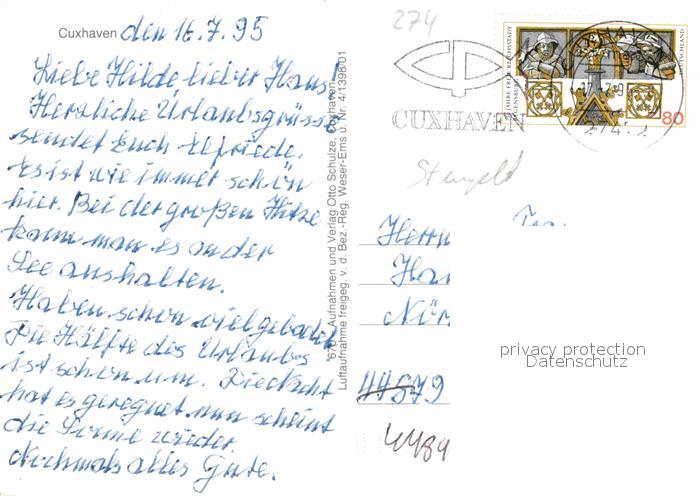 Cuxhaven den 16.7.95
Liebe Hilde lieber Hans!
Herzliche Urlaubsgrüsse
sendet Euch Elfriede.
Es ist wie immer schön
hier. Bei der großen Hitze
kann man es an der
See aushalten.
Haben schon viel gebadet
Die Hälfte des Urlaubs
ist schon um. Die Nacht
hat es geregnet nun scheint
die Sonne wieder.
Nochmals alles Gute.
Aufnahmen und Verlag Otto Schulze, Cuxhaven
Luftaufnahme freigeg. v. d. Bez.-Reg. Weser-Ems u. Nr. 4/1398/01
274
CUXHAVEN
JAHRE FREIE REICHSSTADT
REGENSBURG
DEUTSCHLAND
80
Herrn
Ha
Nür
44879
448
privacy protection
Datenschutz